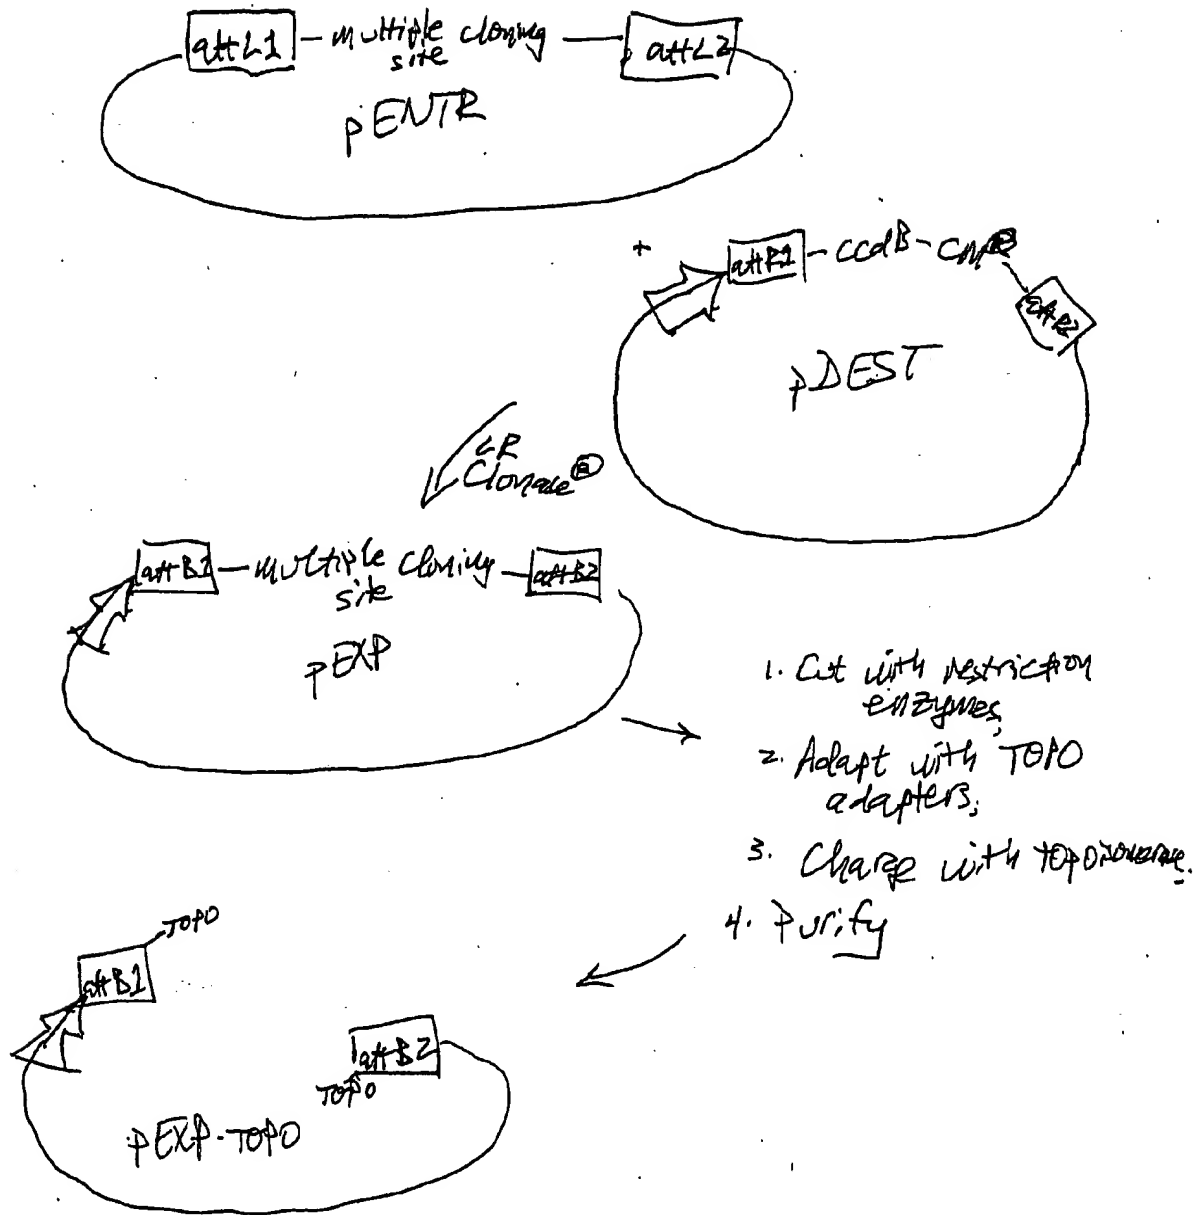 attL1 - multiple cloning site - attL2
pENTR
+
attR1 - ccdB - CmR
attR2
pDEST
LR
Clonase®
attB1 - multiple cloning site - attB2
pEXP
1. Cut with restriction
enzymes,
2. Adapt with TOPO
adapters,
3. Charge with topoisomerase.
4. Purify
TOPO
attB1
attB2
TOPO
pEXP-TOPO